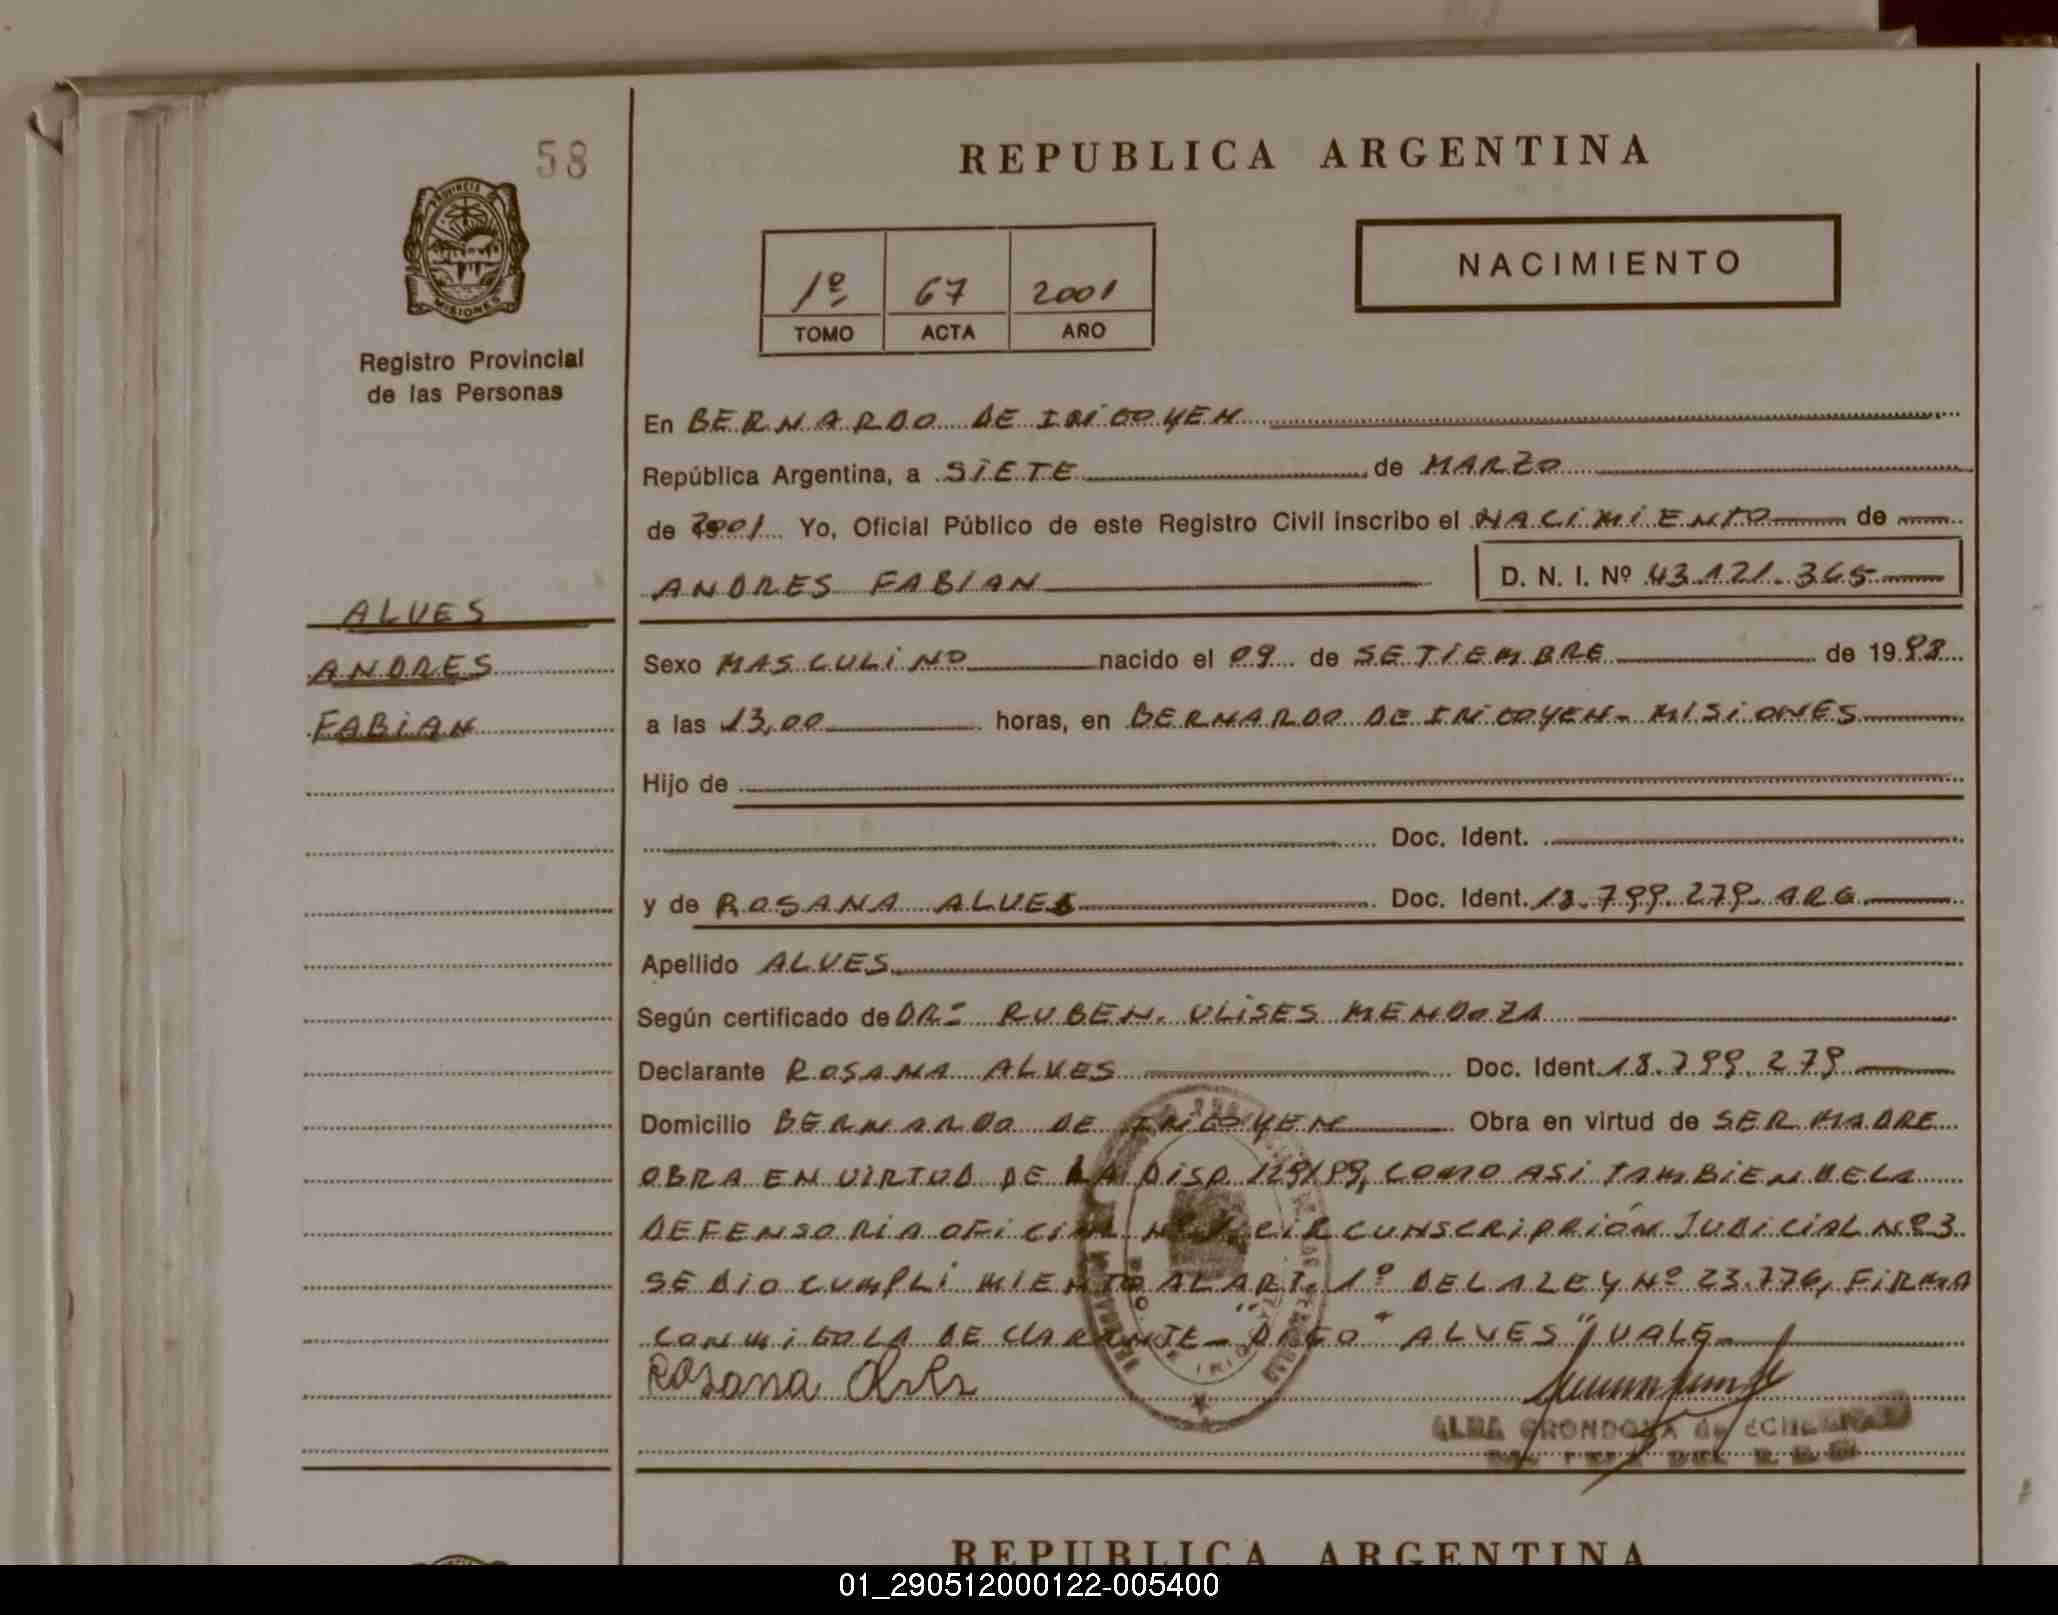 58
PROVINCIA DE
MISIONES
Registro Provincial
de las Personas
REPUBLICA ARGENTINA
1º 67 2001
TOMO ACTA AÑO
NACIMIENTO
En BERNARDO DE IRIGOYEN
República Argentina, a SIETE de MARZO
de 2001 Yo, Oficial Público de este Registro Civil inscribo el NACIMIENTO de
ANDRES FABIAN D. N. I. Nº 43.121.365
ALVES
ANDRES
FABIAN
Sexo MASCULINO nacido el 09 de SETIEMBRE de 1998
a las 13,00 horas, en BERNARDO DE IRIGOYEN - MISIONES
Hijo de
Doc. Ident.
y de ROSANA ALVES Doc. Ident. 18.799.279. ARG
Apellido ALVES
Según certificado de DR= RUBEN. ULISES MENDOZA
Declarante ROSANA ALVES Doc. Ident. 18.799.279
Domicilio BERNARDO DE IRIGOYEN Obra en virtud de SER MADRE
OBRA EN VIRTUD DE LA DISP. 129/99, COMO ASI TAMBIEN DE LA
DEFENSORIA OFICIAL Nº CIRCUNSCRIPRIÓN JUDICIAL Nº 3
SE DIO CUMPLIMIENTO AL ART. 1º DE LA LEY Nº 23.776, FIRMA
CONMIGO LA DECLARANTE - ALVES" VALE-
Rosana Alves
ALBA GRONDONA de
REPUBLICA ARGENTINA
01_290512000122-005400